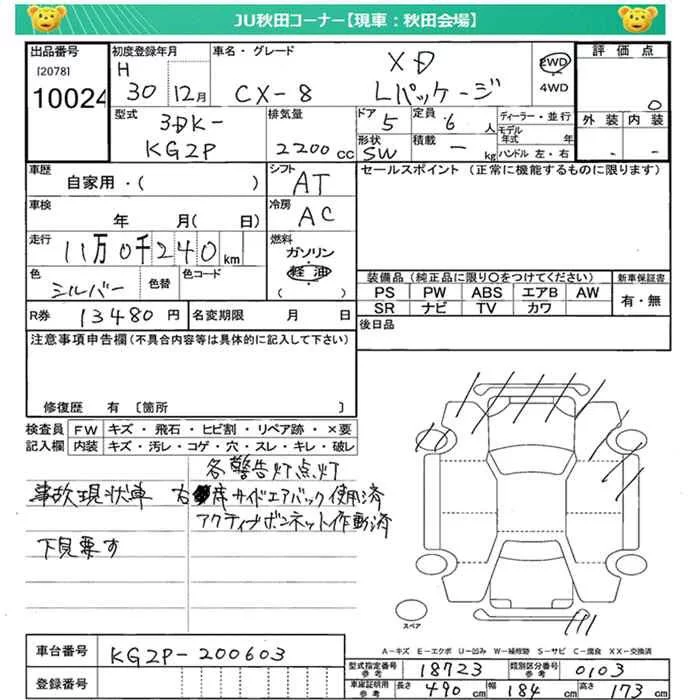 JU秋田コーナー【現車：秋田会場】
出品番号
[2078]
10024
初度登録年月
H
30 12月
車名・グレード
CX-8
XD
Lパッケージ
2WD
4WD
評価点
0
外装 内装
- -
型式
3DK-
KG2P
排気量
2200 cc
ドア 5
定員 6 人
形状 SW
積載 - kg
ディーラー・並行
モデル年式 年
ハンドル 左・右
車歴
自家用・( )
シフト
AT
セールスポイント (正常に機能するものに限ります)
車検
年 月( 日)
冷房
AC
走行
11万0千240 km
燃料
ガソリン
軽油
( )
色
シルバー
色替
色コード
装備品 (純正品に限り○をつけてください)
新車保証書
PS PW ABS エアB AW
SR ナビ TV カワ
有・無
R券 13480 円
名変期限 月 日
後日品
注意事項申告欄(不具合内容等は具体的に記入して下さい)
修復歴 有 [箇所 ]
検査員
記入欄
FW キズ・飛石・ヒビ割・リペア跡・×要
内装 キズ・汚レ・コゲ・穴・スレ・キレ・破レ
各警告灯点灯
事故現状車 右 席サイドエアバック使用済
アクティブボンネット作動済
下見要す
スペア
A－キズ E－エクボ U－凹み W－補修跡 S－サビ C－腐食 XX－交換済
車台番号 KG2P-200603
登録番号
型式指定番号
参考
18723
類別区分番号
参考
0103
車庫証明用
参考
長さ 490 cm
幅 184 cm
高さ 173 cm